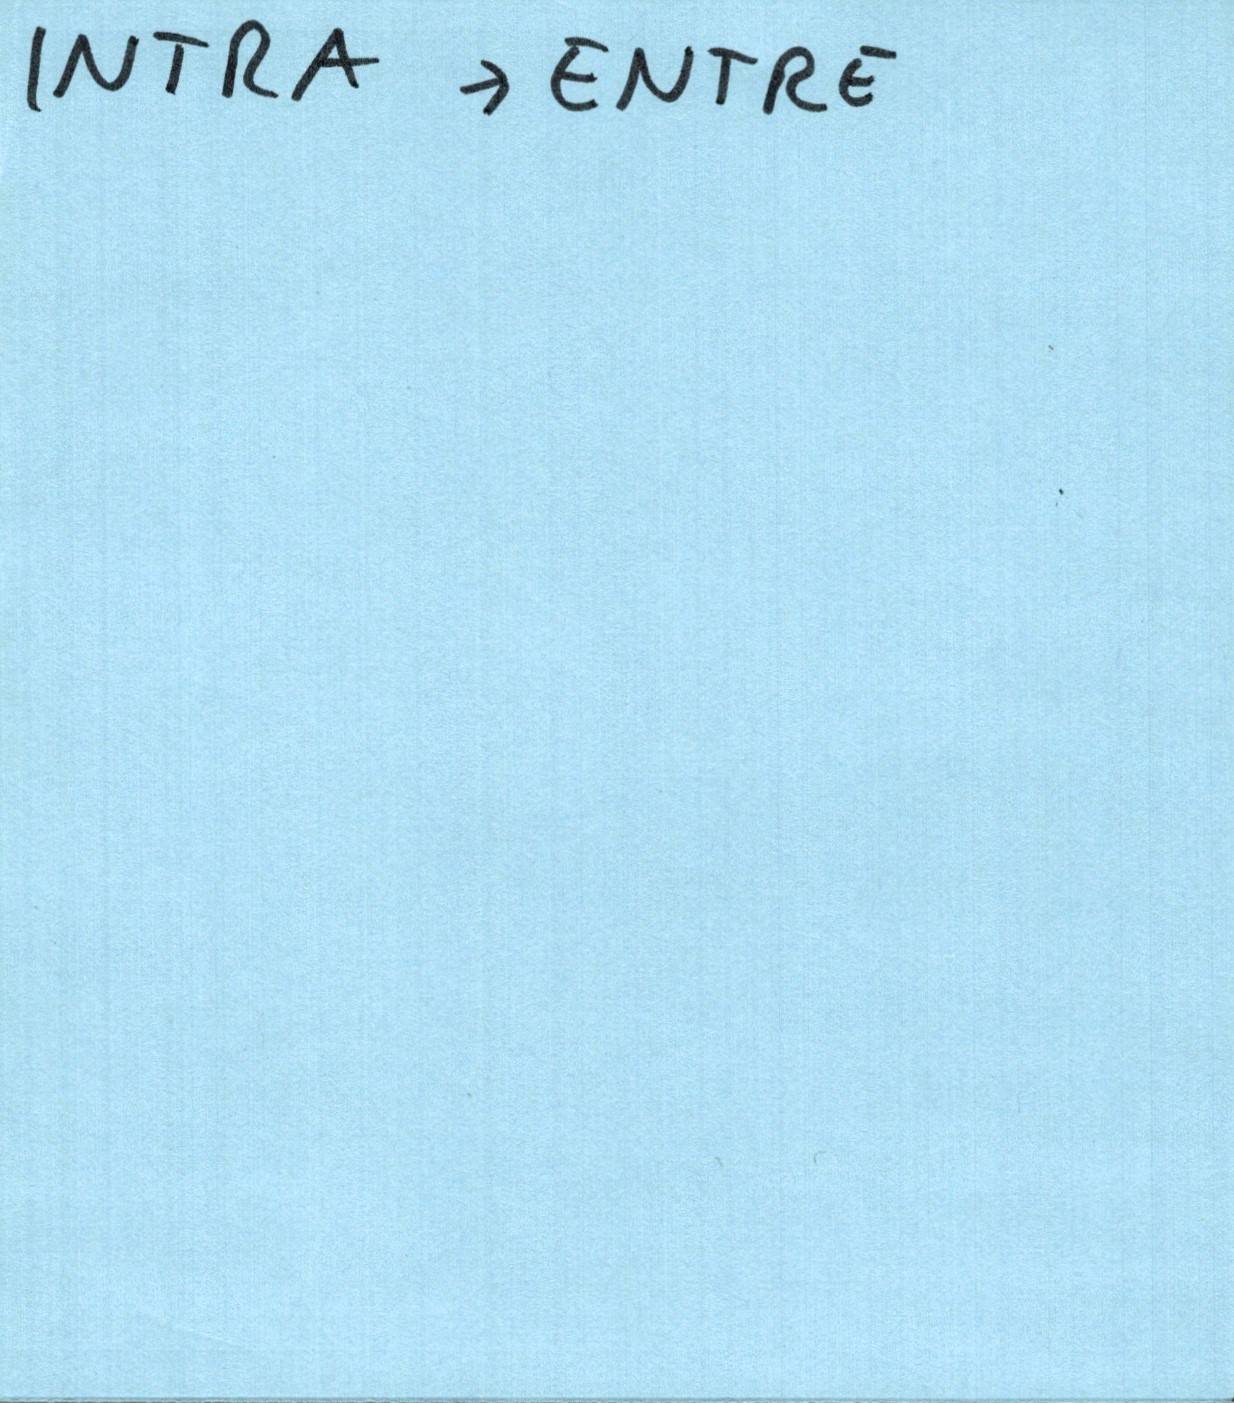 INTRA → ENTRE